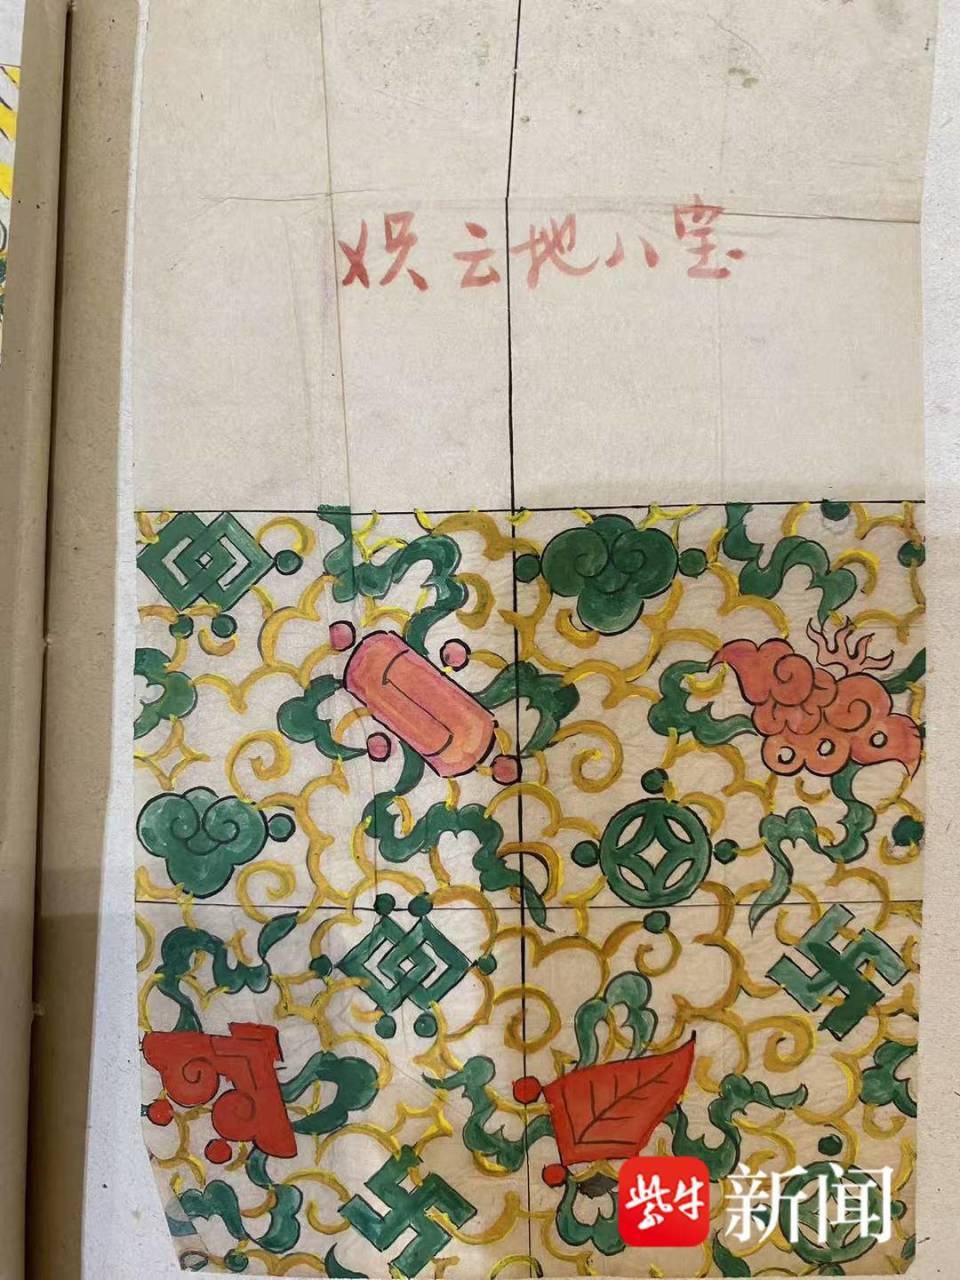 云地八宝
紫牛新闻